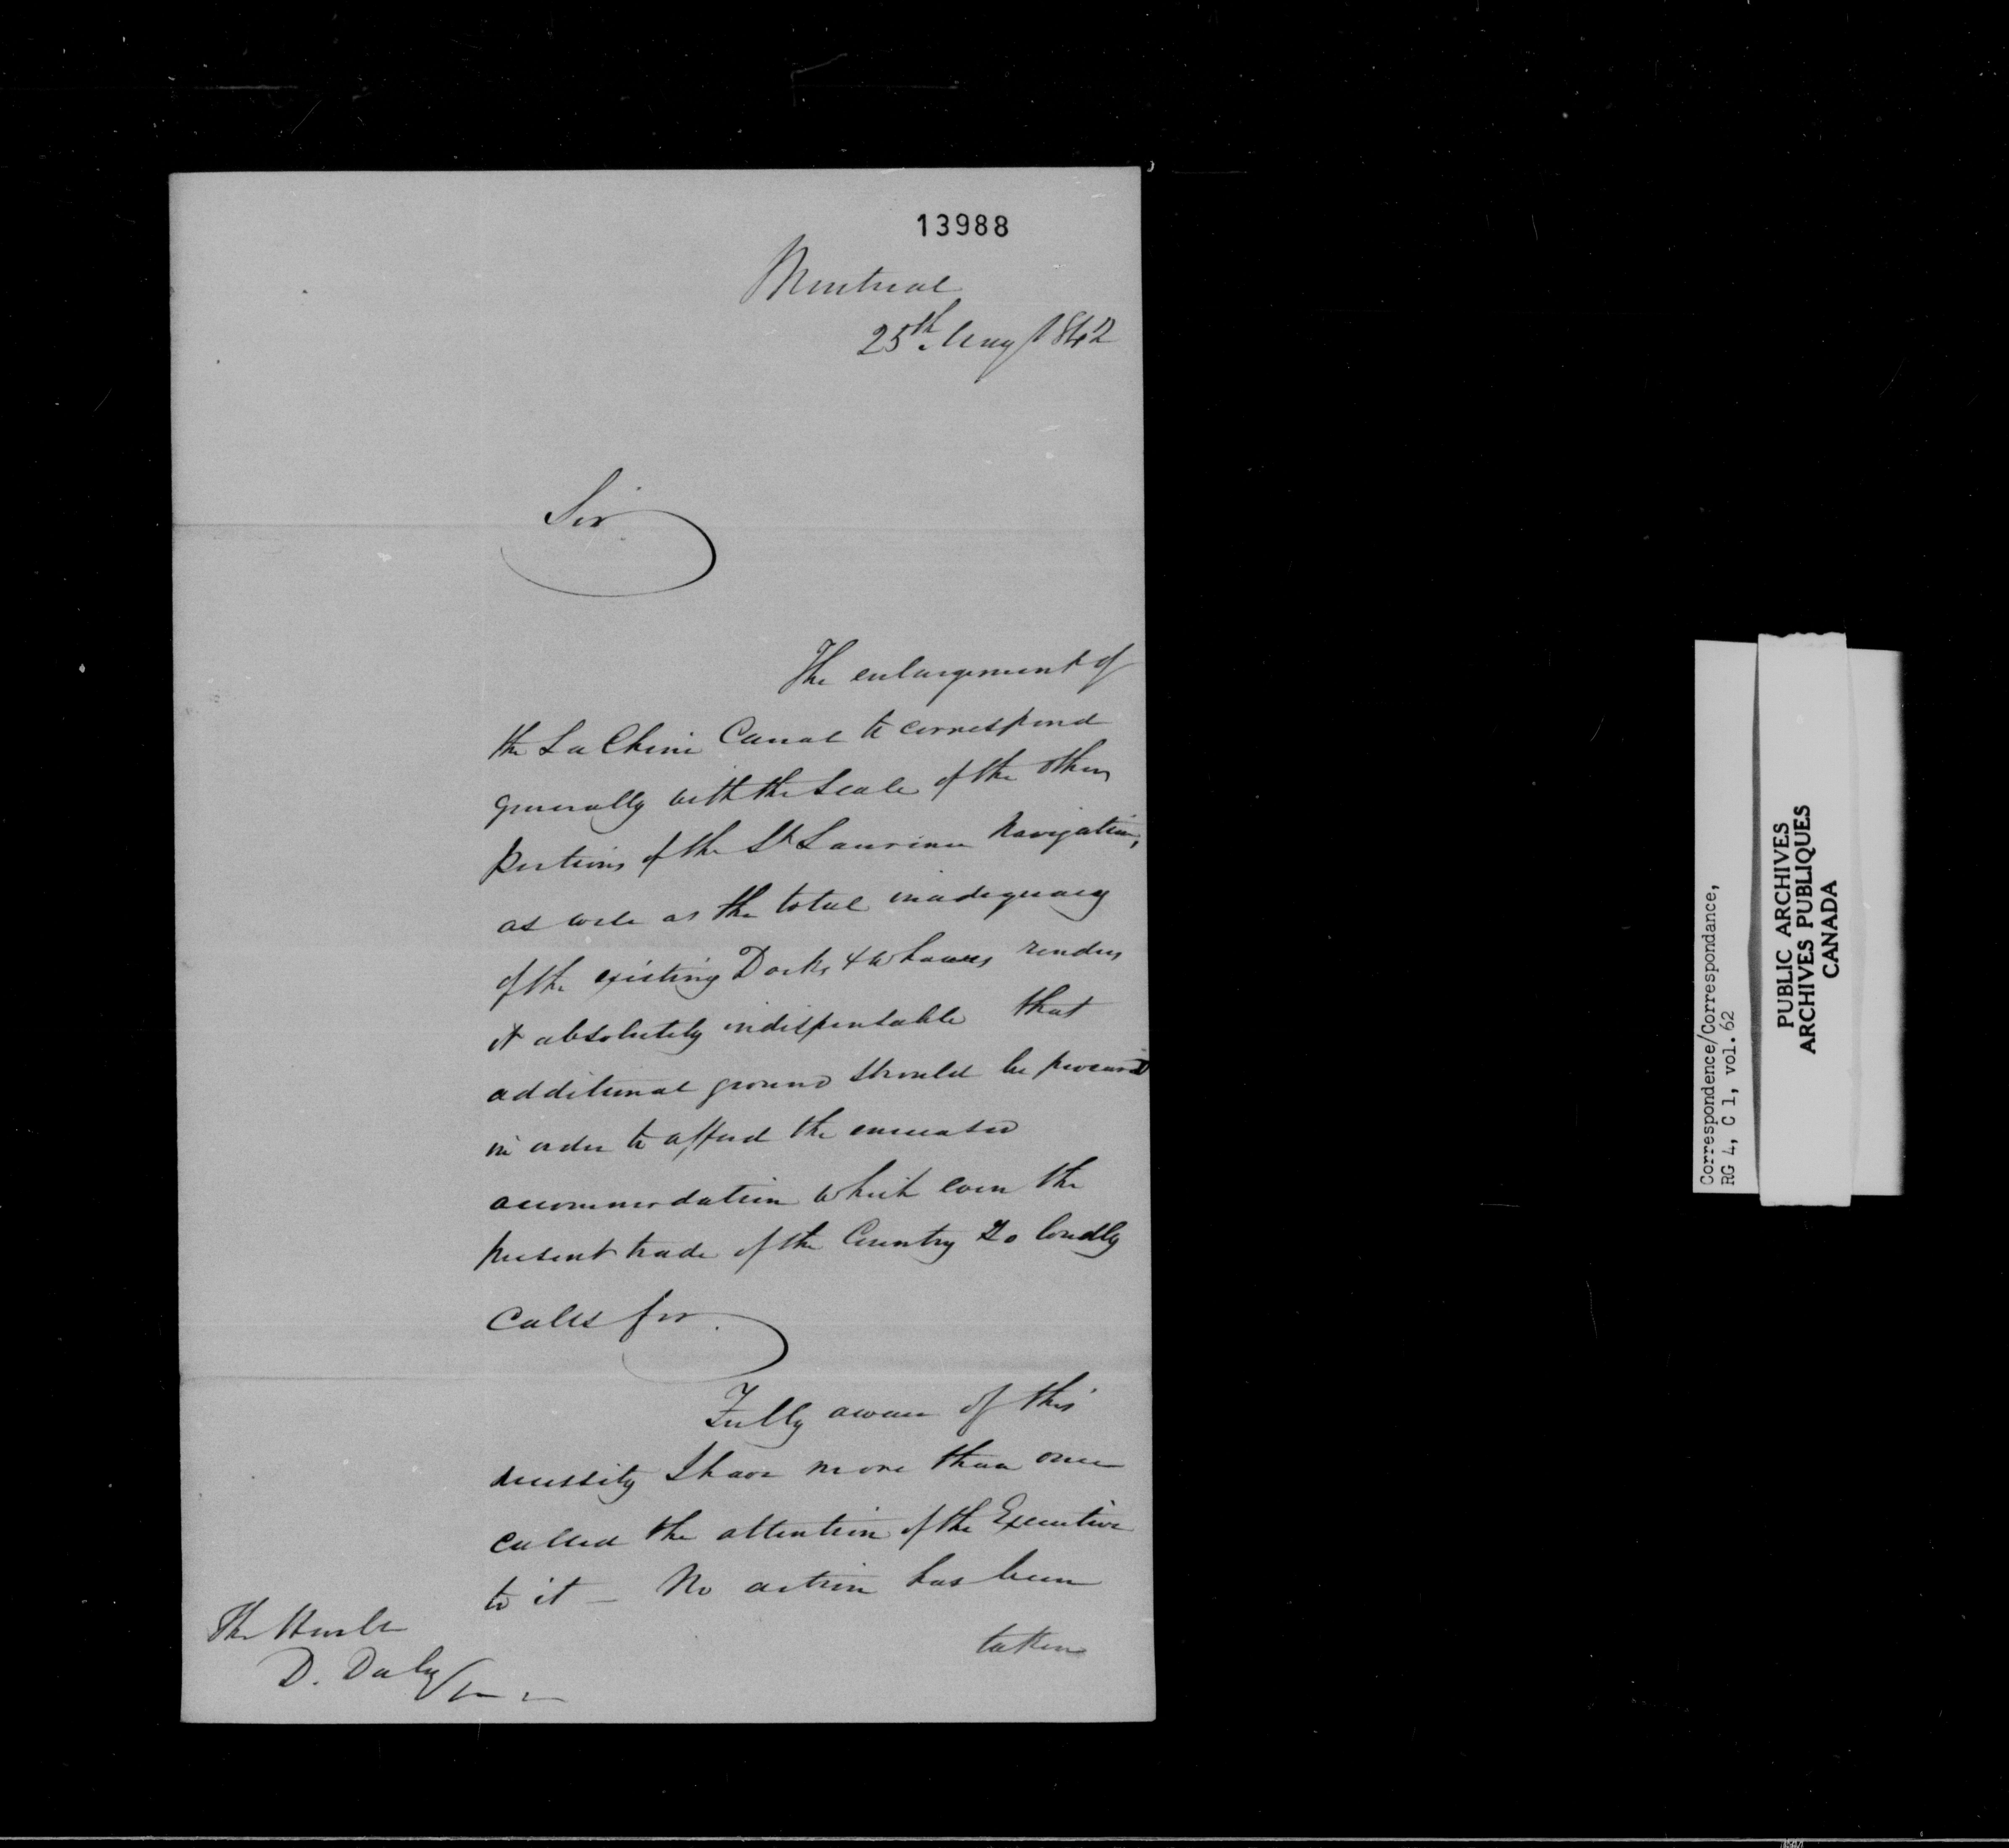 13988
Montreal
25th May 1842
Sir
The enlargement of
the La Chine Canal to correspond
generally with the scale of the other
portions of the St Lawrence Navigation,
as well as the total inadequacy
of the existing Docks & wharves renders
it absolutely indispensable that
additional ground should be procured
in order to afford the increased
accommodation which even the
present trade of the Country so loudly
calls for.
Fully aware of this
necessity I have more than once
called the attention of the Executive
to it — No action has been
taken
The Honble
D. Daly
Correspondence/Correspondance,
RG 4, C 1, vol. 62
PUBLIC ARCHIVES
ARCHIVES PUBLIQUES
CANADA